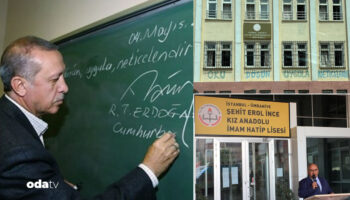 04 Mayıs
uygula, neticelendir
R. T. ERDOĞA
Cumhurbaş
odatv
OKU DÜŞÜN UYGULA
İSTANBUL - ÜMRANİYE
ŞEHİT EROL İNCE
KIZ ANADOLU
İMAM HATİP LİSESİ